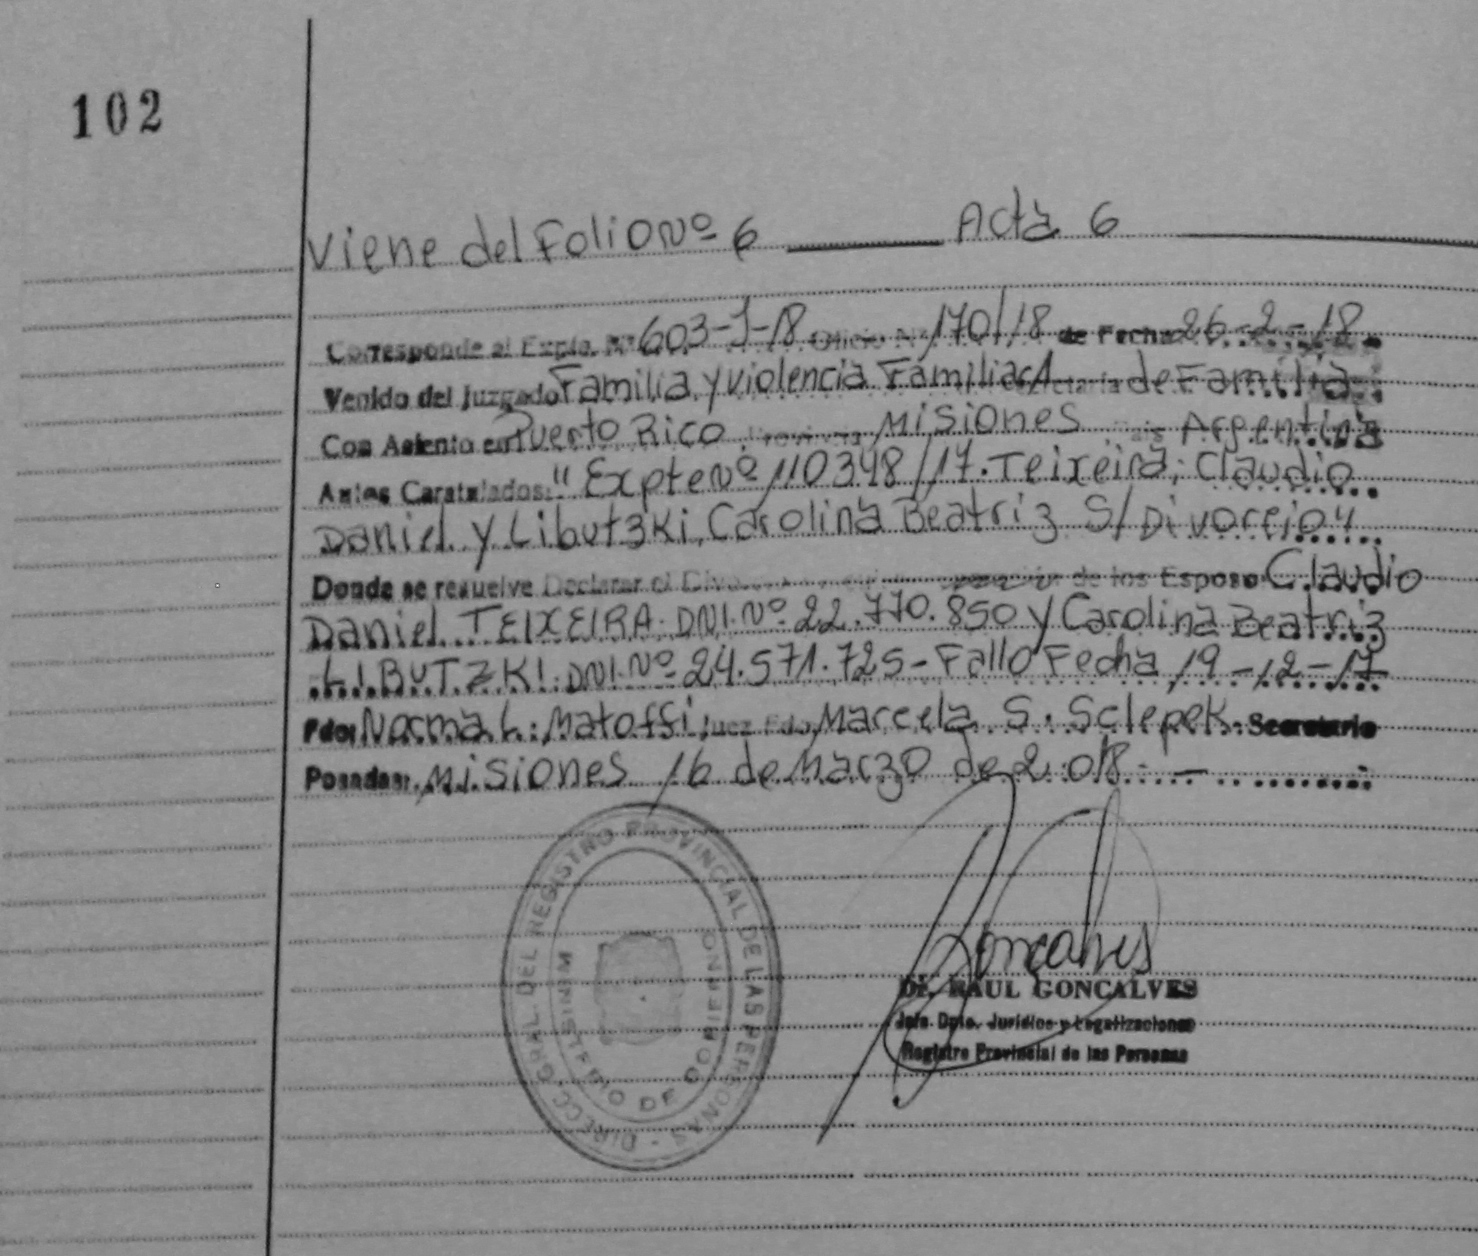 102
Viene del Folio Nº 6 Acta 6
Corresponde al Expte. Nº 603-J-18 Oficio Nº 170/18 de Fecha 26-2-18
Venido del Juzgado Familia y violencia Familiar de Familia
Con Asiento en Puerto Rico Provincia Misiones Argentina
Autos Caratulados: "Expte Nº 110348/17. Teixeira; Claudio
Daniel y Libutzki, Carolina Beatriz S/Divorcio"
Donde se resuelve Declarar el de los Esposo Claudio
Daniel TEIXEIRA. DNI. Nº 22.770.850 y Carolina Beatriz
LIBUTZKI. DNI. Nº 24.571.725 - Fallo Fecha 19-12-17
Fdo: Norma L. Matoffi, Juez Fdo. Marcela S. Sclepek. Secretario
Posadas: Misiones 16 de Marzo de 2.018. -
DIRECC. GRAL. DEL REGISTRO PROVINCIAL DE LAS PERSONAS
MINISTERIO DE GOBIERNO
Goncalves
Dr. RAUL GONCALVES
Jefe Dpto. Jurídico y Legalizaciones
Registro Provincial de las Personas